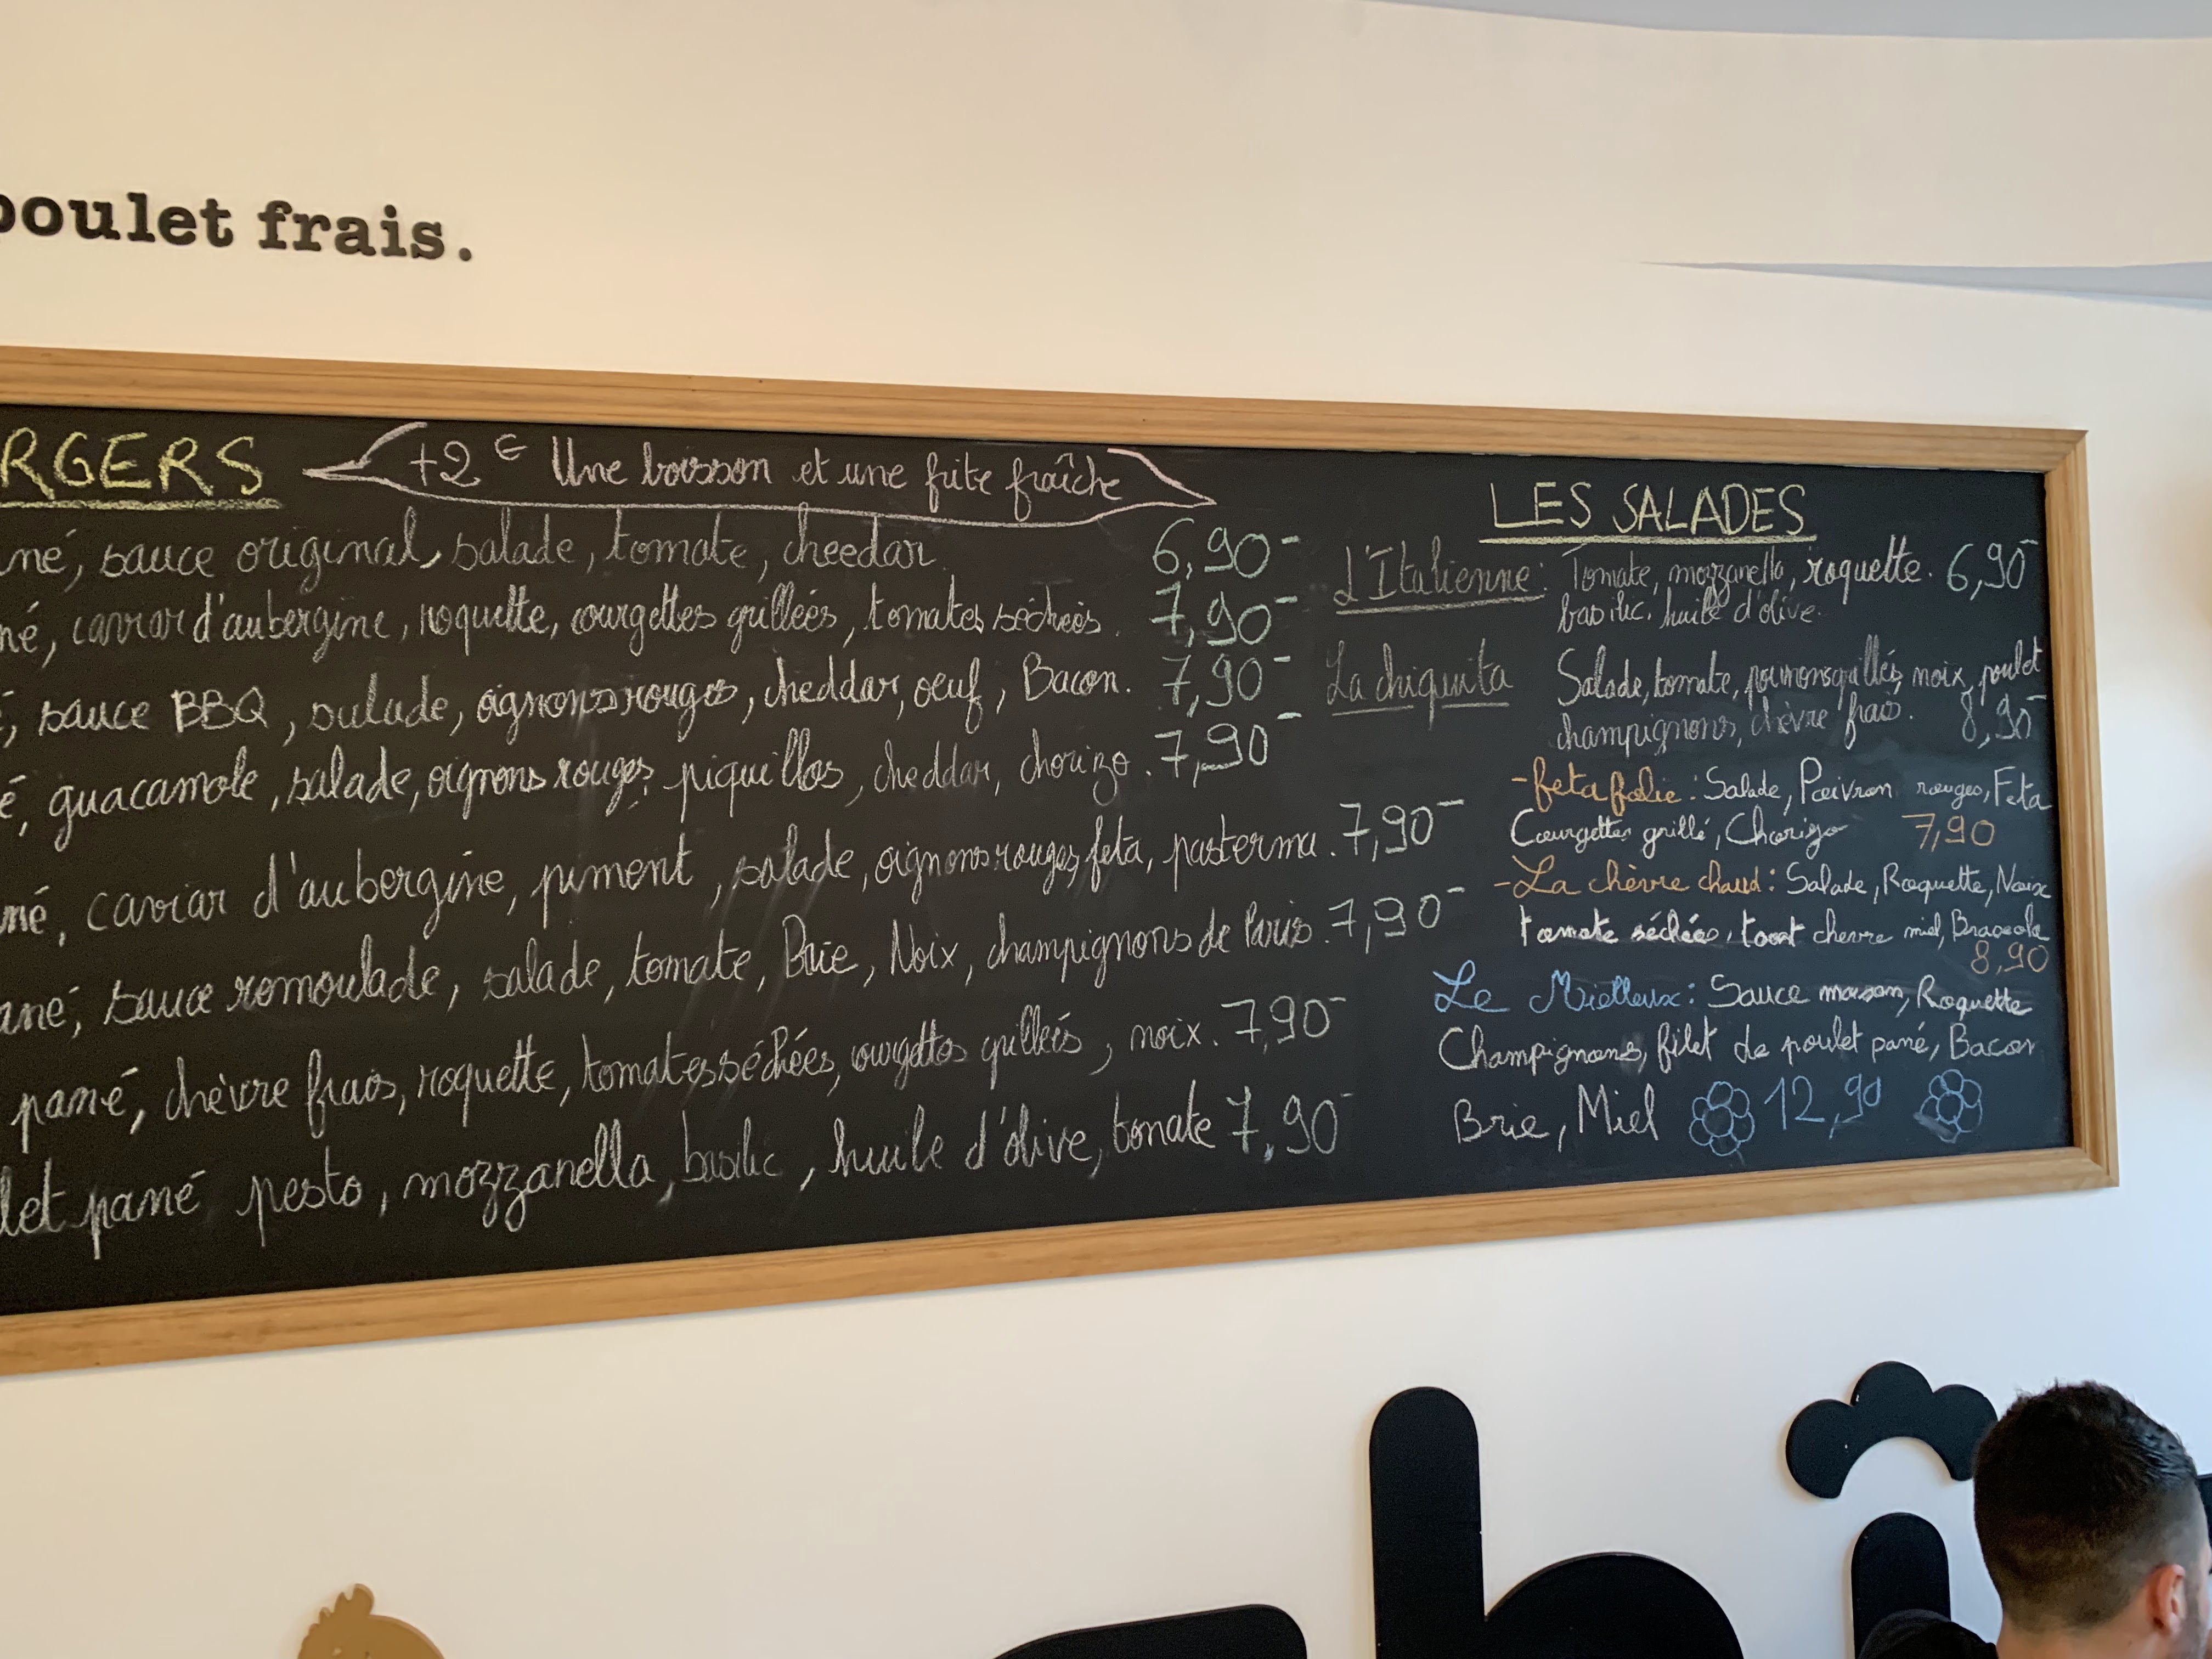 poulet frais.
RGERS
+2€ Une boisson et une frite fraîche
né, sauce original, salade, tomate, cheedar.
6,90
né, caviar d'aubergine, roquette, courgettes grillées, tomates séchées.
7,90
é, sauce BBQ, salade, oignons rouges, cheddar, oeuf, Bacon.
7,90
é, guacamole, salade, oignons rouges, piquillos, cheddar, chorizo.
7,90
né, caviar d'aubergine, piment, salade, oignons rouges, feta, pasterma.
7,90
ané, sauce romoulade, salade, tomate, Brie, Noix, champignons de Paris.
7,90
pané, chèvre frais, roquette, tomates séchées, courgettes grillées, noix.
7,90
let pané pesto, mozzanella, basilic, huile d'olive, tomate
7,90
LES SALADES
L'Italienne: Tomate, mozzanella, roquette. 6,90
basilic, huile d'olive.
La chiquita Salade, tomate, noix, poulet
champignons, chèvre frais. 8,90
-feta folie: Salade, Poivron rouges, Feta
Courgettes grillé, Chorizo 7,90
-La chèvre chaud: Salade, Roquette, Noix
tomate séchées, toast chevre miel, Braseola
8,90
Le Mielleux: Sauce maison, Roquette
Champignons, filet de poulet pané, Bacon
Brie, Miel 12,90